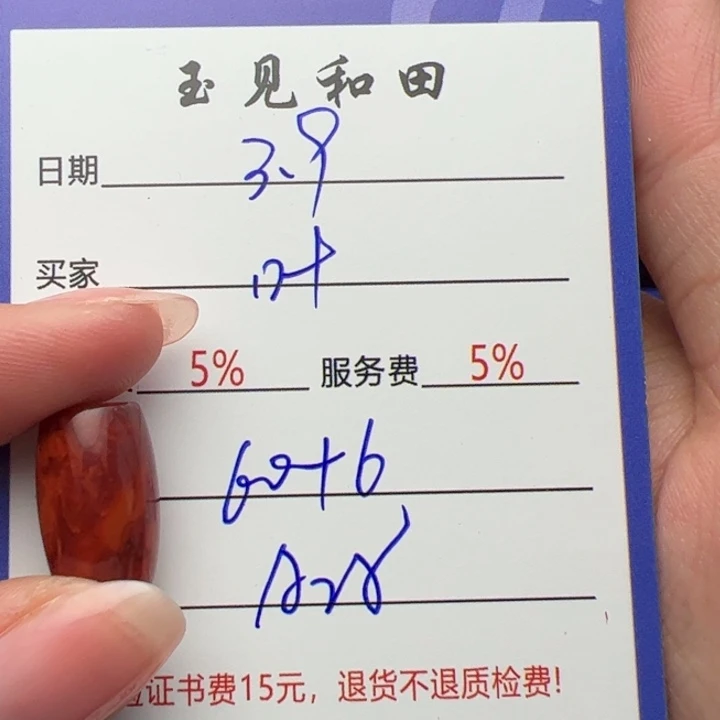 玉见和田
日期 3.9
买家 叶
5% 服务费 5%
60+6
证书费15元，退货不退质检费!